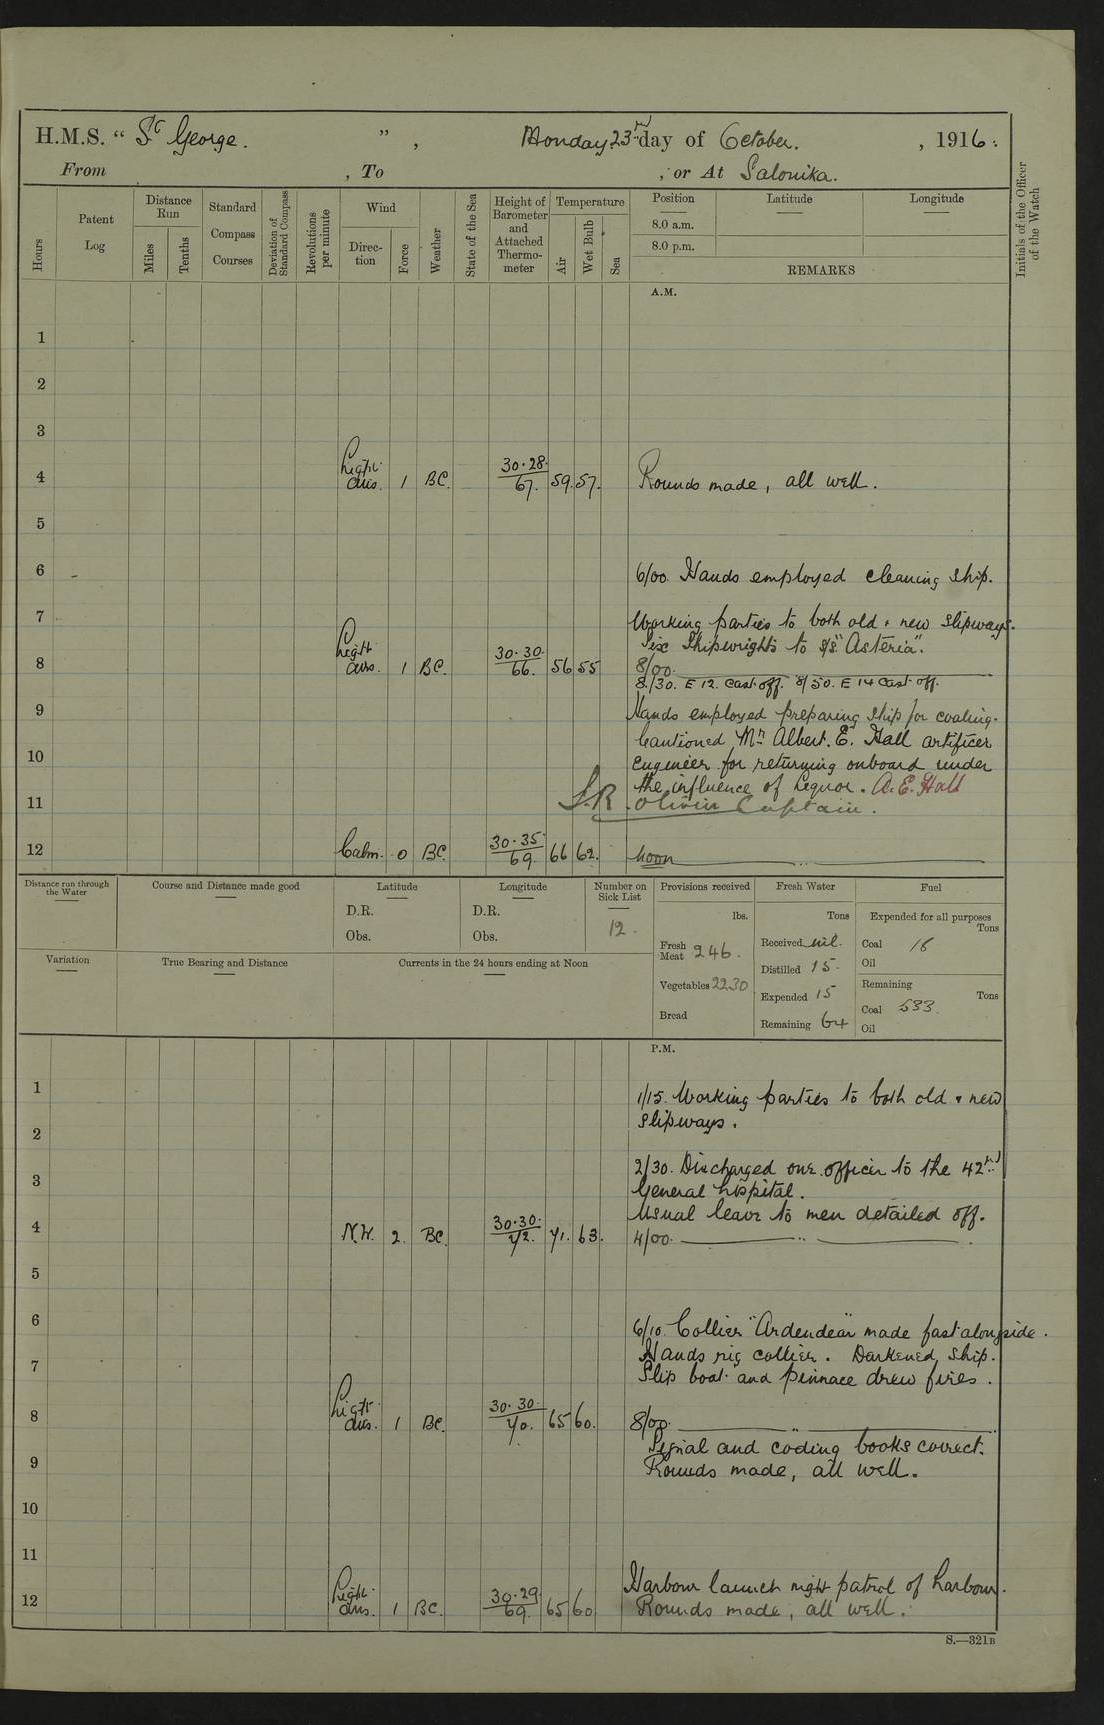 H.M.S. “ St George. ”, Monday 23rd day of October. , 1916.
From , To , or At Salonika.
Hours
Patent Log
Distance Run
Miles
Tenths
Standard Compass Courses
Deviation of Standard Compass
Revolutions per minute
Wind
Direction
Force
Weather
State of the Sea
Height of Barometer and Attached Thermometer
Temperature
Air
Wet Bulb
Sea
Position
8.0 a.m.
8.0 p.m.
Latitude
Longitude
REMARKS
Initials of the Officer of the Watch
A.M.
1
2
3
4 Light airs. 1 BC. 30.28. 67. 59. 57. Rounds made, all well.
5
6 6/00 Hands employed cleaning ship.
7 Working parties to both old & new slipways.
Six Shipwrights to S/S "Asteria".
8 Light airs. 1 BC. 30.30. 66. 56 55 8/00.
8./30. E 12. cast off. 8/50. E 14 Cast off.
9 Hands employed preparing ship for coaling.
Cautioned Mr. Albert. E. Hall artificer
10 Engineer for returning onboard under
the influence of liquor. A. E. Hall
11 Captain.
12 Calm. 0 BC. 30.35. 69. 66 62. Noon
Distance run through the Water
Course and Distance made good
Latitude
D.R.
Obs.
Longitude
D.R.
Obs.
Number on Sick List
12.
Provisions received
lbs.
Fresh Meat 246.
Vegetables 2230
Bread
Fresh Water
Tons
Received nil.
Distilled 15.
Expended 15
Remaining 64
Fuel
Expended for all purposes
Tons
Coal 16
Oil
Remaining
Tons
Coal 533.
Oil
Variation
True Bearing and Distance
Currents in the 24 hours ending at Noon
P.M.
1 1/15. Working parties to both old & new
2 slipways.
2/30. Discharged one officer to the 42nd
3 General hospital.
Usual leave to men detailed off.
4 N.W. 2. BC. 30.30. 72. 71. 63. 4/00.
5
6 6/10. Collier "Ardendear" made fast alongside.
7 Hands rig collier. Darkened ship.
Slip boat and pinnace drew fires.
8 Light airs. 1 BC. 30.30. 70. 65 60. 8/00.
Signal and coding books correct.
9 Rounds made, all well.
10
11
Harbour launch night patrol of harbour.
12 Light airs. 1 BC. 30.29 69. 65 60 Rounds made, all well.
S.—321B